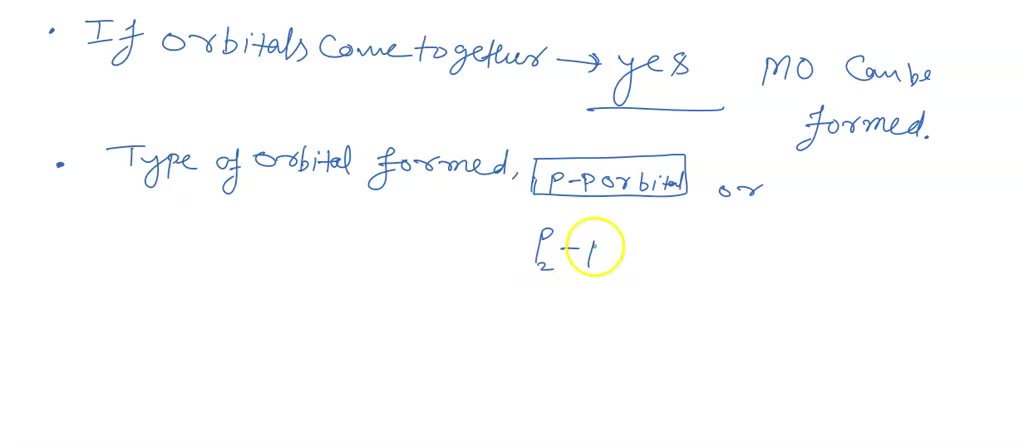 • If orbitals come together → yes MO can be
formed.
• Type of orbital formed, p-p orbital or
P2 - p